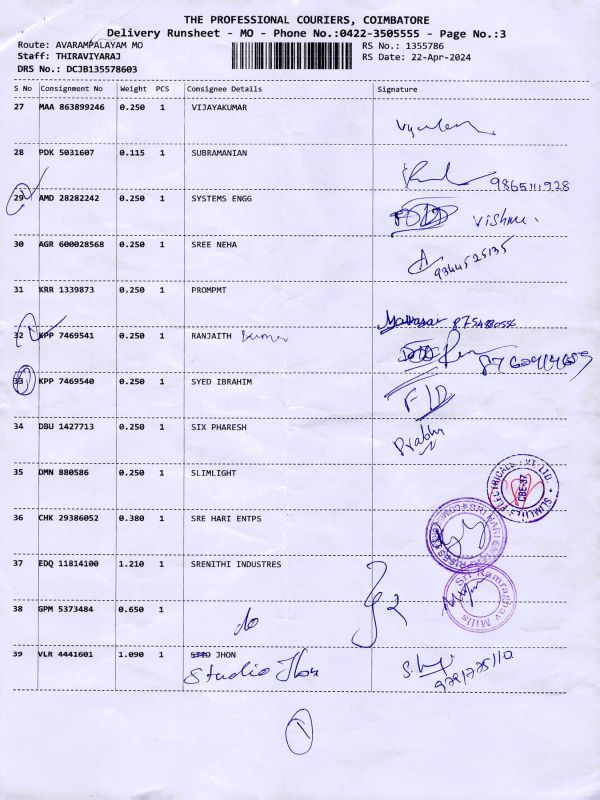 THE PROFESSIONAL COURIERS, COIMBATORE
Delivery Runsheet - MO - Phone No.:0422-3505555 - Page No.:3
Route: AVARAMPALAYAM MO RS No.: 1355786
Staff: THIRAVIYARAJ RS Date: 22-Apr-2024
DRS No.: DCJB135578603
S No Consignment No Weight PCS Consignee Details Signature
27 MAA 863899246 0.250 1 VIJAYAKUMAR
28 PDK 5031607 0.115 1 SUBRAMANIAN
29 AMD 28282242 0.250 1 SYSTEMS ENGG Vishnu.
30 AGR 600028568 0.250 1 SREE NEHA
9344525135
31 KRR 1339873 0.250 1 PROMPMT
32 KPP 7469541 0.250 1 RANJAITH kumar
33 KPP 7469540 0.250 1 SYED IBRAHIM
34 DBU 1427713 0.250 1 SIX PHARESH Prabhu
35 DMN 880586 0.250 1 SLIMLIGHT
CBE-37
36 CHK 29386052 0.380 1 SRE HARI ENTPS
37 EDQ 11814100 1.210 1 SRENITHI INDUSTRES
Sri Ramraghav Mills
38 GPM 5373484 0.650 1 do
39 VLR 4441601 1.090 1 JHON
Studio Jhon
1